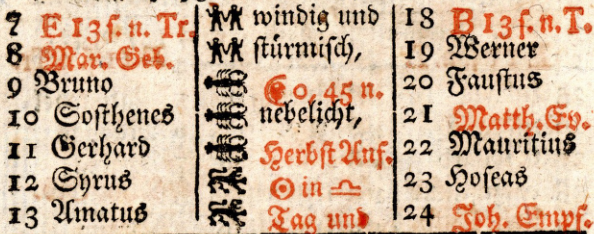 7 E 13 s. n. Tr.
8 Mar. Geb.
9 Bruno
10 Sosthenes
11 Gerhard
12 Syrus
13 Amatus
windig und
stürmisch,
☾ 0, 45 n.
nebelicht,
Herbst Anf.
☉ in ♎
Tag und
18 B 13 s. n. T.
19 Werner
20 Faustus
21 Matth. Ev.
22 Mauritius
23 Hoseas
24 Joh. Empf.